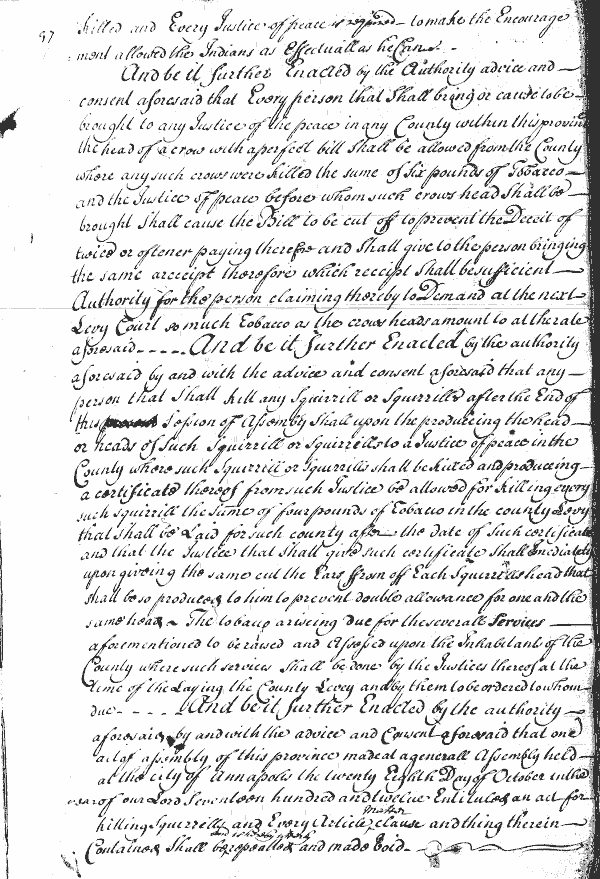 97
killed and Every Justice of peace is required to make the Encourage
ment allowed the Indians as Effectuall as he Can
And be it further Enacted by the Authority advice and
consent aforesaid that Every person that Shall bring or cause to be
brought to any Justice of the peace in any County within this province
the head of a crow with a perfect bill Shall be allowed from the County
where any such crows were killed the sume of Six pounds of Tobacco
and the Justice of peace before whom such crows head Shall be
brought Shall cause the Bill to be cut off to prevent the Deceit of
twice or oftener paying therefore and Shall give to the person bringing
the same a receipt therefore which receipt Shall be sufficient
Authority for the person claiming thereby to Demand at the next
Levy Court so much Tobacco as the crows heads amount to at the rate
aforesaid And be it further Enacted by the authority
aforesaid by and with the advice and consent aforesaid that any
person that Shall kill any Squirrill or Squirrills after the End of
this Session of Assembly Shall upon the produceing the head
or heads of Such Squirrill or Squirrills to a Justice of peace in the
County where such Squirrill or Squirrills shall be killed and produceing
a certificate thereof from such Justice be allowed for killing every
such squirrill the Sume of four pounds of Tobacco in the county Levy
that shall be Laid for such county after the date of such certificate
and that the Justice that Shall give such certificate Shall Imediately
upon giveing the same cut the Ears from off Each Squirrills head that
shall be so produced to him to prevent double allowance for one and the
same head The tobacco ariseing due for the severall Services
aforementioned to be raised and Assessed upon the Inhabitants of the
County where such services Shall be done by the Justices thereof at the
time of the Laying the County Levey and by them to be ordered to whom
due And be it further Enacted by the authority
aforesaid by and with the advice and Consent aforesaid that one
act of assembly of this province made at a generall Assembly held
at the city of Annapolis the twenty Eighth Day of October in the
year of our Lord Seventeen hundred and twelve Entituled an act for
killing Squirrills and Every Article matter clause and thing therein
Contained Shall be repealled and made Void